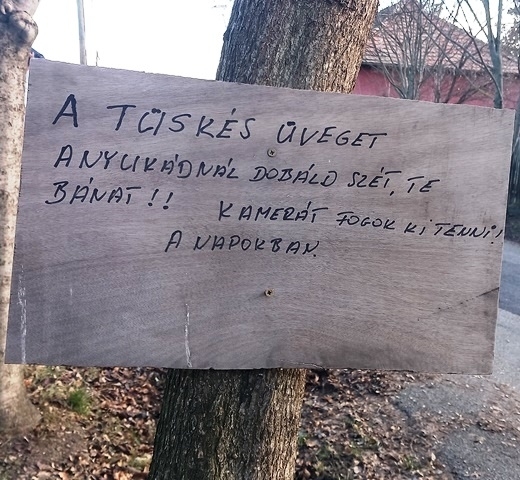 A TÜSKÉS ÜVEGET
ANYUKÁDNÁL DOBÁLD SZÉT, TE
BÁNAT!! KAMERÁT FOGOK KITENNI!!
A NAPOKBAN.